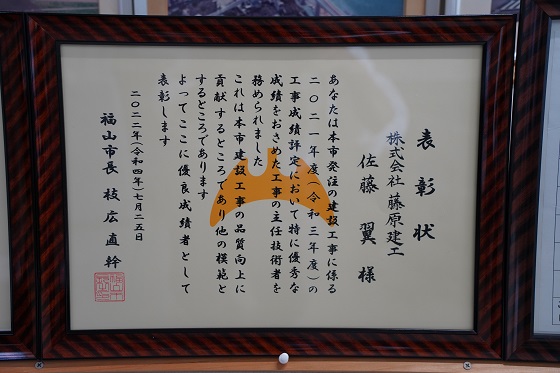 表彰状
株式会社 藤原建工
佐藤 翼 様
あなたは本市発注の建設工事に係る
二〇二一年度(令和三年度)の
工事成績評定において特に優秀な
成績をおさめた工事の主任技術者を
務められました
これは本市建設工事の品質向上に
貢献するところであり他の模範と
するところであります
よってここに優良成績者として
表彰します
二〇二二年(令和四年)七月二五日
福山市長 枝広直幹